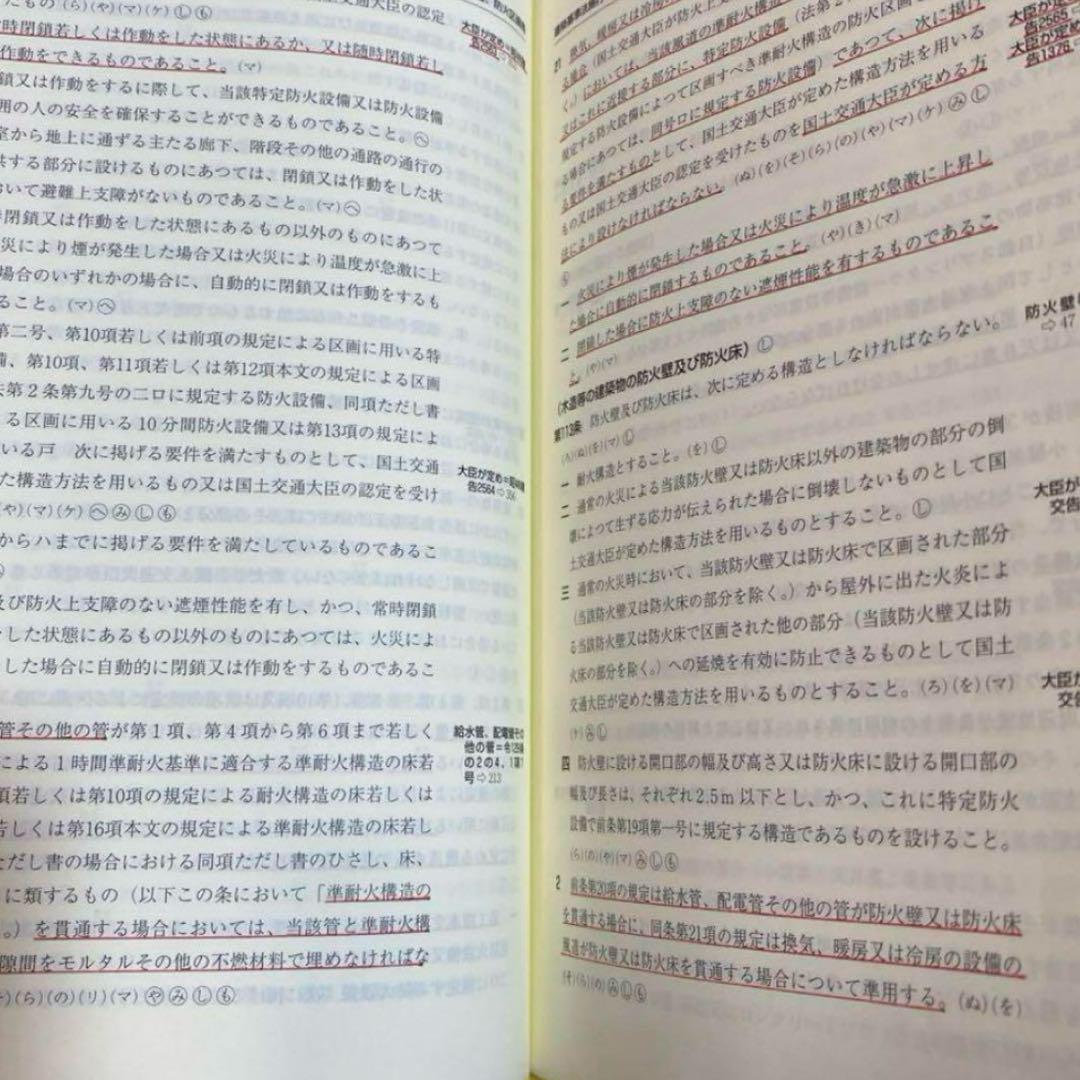 時閉鎖若しくは作動をした状態にあるか、又は随時閉鎖若し
作動をできるものであること。(マ)
閉鎖又は作動をするに際して、当該特定防火設備又は防火設備
用の人の安全を確保することができるものであること。㋬
室から地上に通ずる主たる廊下、階段その他の通路の通行の
供する部分に設けるものにあつては、閉鎖又は作動をした状
おいて避難上支障がないものであること。(マ)㋬
時閉鎖又は作動をした状態にあるもの以外のものにあつて
火災により煙が発生した場合又は火災により温度が急激に上
場合のいずれかの場合に、自動的に閉鎖又は作動をするも
ること。(マ)㋬
第二号、第10項若しくは前項の規定による区画に用いる特
備、第10項、第11項若しくは第12項本文の規定による区画
法第2条第九号の二ロに規定する防火設備、同項ただし書
る区画に用いる10分間防火設備又は第13項の規定によ
いる戸 次に掲げる要件を満たすものとして、国土交通
た構造方法を用いるもの又は国土交通大臣の認定を受け
(や)(マ)(ケ)㋬㋯㋛㋲
からハまでに掲げる要件を満たしているものであるこ
及び防火上支障のない遮煙性能を有し、かつ、常時閉鎖
をした状態にあるもの以外のものにあつては、火災によ
した場合に自動的に閉鎖又は作動をするものであるこ
管その他の管が第1項、第4項から第6項まで若しく
による1時間準耐火基準に適合する準耐火構造の床若
項若しくは第10項の規定による耐火構造の床若しくは
若しくは第16項本文の規定による準耐火構造の床若し
ただし書の場合における同項ただし書のひさし、床、
に類するもの(以下この条において「準耐火構造の
。)を貫通する場合においては、当該管と準耐火構
隙間をモルタルその他の不燃材料で埋めなければな
(ら)(の)(リ)(マ)㋳㋯㋛㋲
大臣が定め
告2564⇨
給水管、配電管その
他の管=令129
の2の4、1項
号⇨213
る場合においては、当該風道の準耐火構造
又はこれに近接する部分に、特定防火設備(法第2
規定する防火設備によつて区画すべき準耐火構造の防火区画
る場合にあつては、同号ロに規定する防火設備)であつて、次に掲げ
る要件を満たすものとして、国土交通大臣が定めた構造方法を用いる
もの又は国土交通大臣の認定を受けたものを国土交通大臣が定める方
法により設けなければならない。(ぬ)(を)(そ)(ら)(の)(や)(マ)(ケ)㋯㋛
一 火災により煙が発生した場合又は火災により温度が急激に上昇し
た場合に自動的に閉鎖するものであること。(や)(き)(マ)
二 閉鎖した場合に防火上支障のない遮煙性能を有するものであるこ
と。(や)(マ)
(木造等の建築物の防火壁及び防火床)㋛
第113条 防火壁及び防火床は、次に定める構造としなければならない。
(へ)(ぬ)(を)(マ)㋛
一 耐火構造とすること。(を)㋛
二 通常の火災による当該防火壁又は防火床以外の建築物の部分の倒
壊によつて生ずる応力が伝えられた場合に倒壊しないものとして国
土交通大臣が定めた構造方法を用いるものとすること。㋛
三 通常の火災時において、当該防火壁又は防火床で区画された部分
(当該防火壁又は防火床の部分を除く。)から屋外に出た火炎によ
る当該防火壁又は防火床で区画された他の部分(当該防火壁又は防
火床の部分を除く。)への延焼を有効に防止できるものとして国土
交通大臣が定めた構造方法を用いるものとすること。(ろ)(を)(マ)
(ケ)㋯㋛
四 防火壁に設ける開口部の幅及び高さ又は防火床に設ける開口部の
幅及び長さは、それぞれ2.5m以下とし、かつ、これに特定防火
設備で前条第19項第一号に規定する構造であるものを設けること。
(ら)(の)(や)(マ)㋯㋛㋲
2 前条第20項の規定は給水管、配電管その他の管が防火壁又は防火床
を貫通する場合に、同条第21項の規定は換気、暖房又は冷房の設備の
風道が防火壁又は防火床を貫通する場合について準用する。(ぬ)(を)
(そ)(ら)(の)㋯㋛㋲
大臣が定め
告2565
大臣が定め
告1376
防火壁
⇨47
大臣が
交告
大臣が
交告